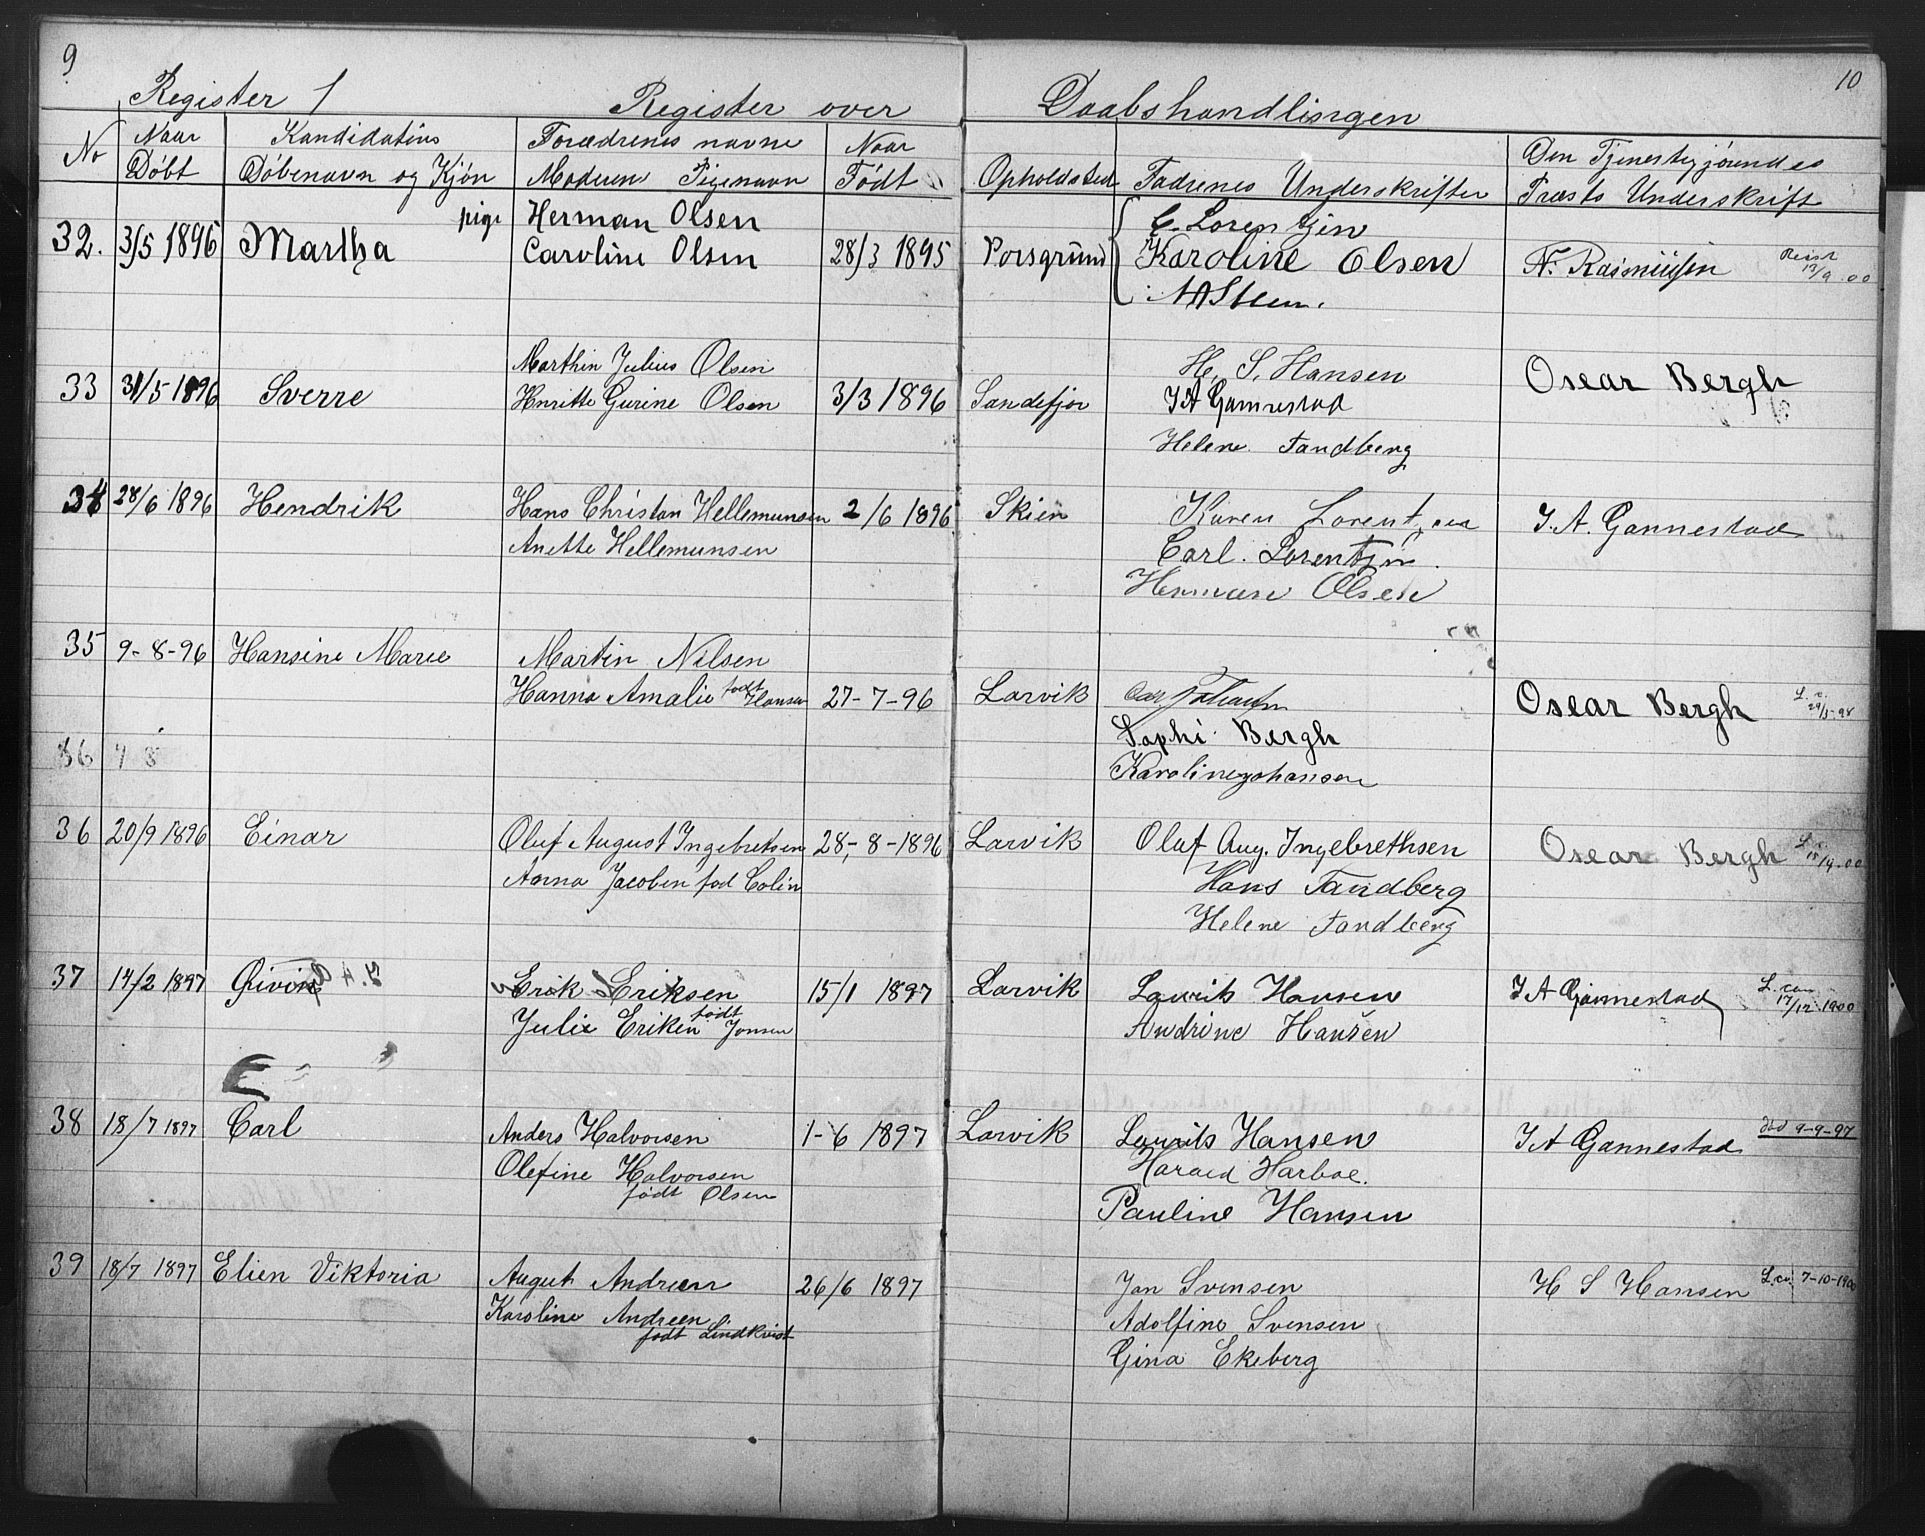 9
10
Register 1 Register over Daabshandlingen
No
Naar Døbt
Kandidatens Døbenavn og Kjøn
Forædrenes navne Moderen Pigenavn
Naar Født
Opholdsted
Fadrenes Underskrifter
Den Tjenestegjørendes Præsts Underskrift
32. 3/5 1896 Martha pige
Herman Olsen
Caroline Olsen
28/3 1895 Porsgrund
C. Lorentzen
Karoline Olsen
N. Rasmussen
Reist 19/9.00
33 31/5 1896 Sverre
Marthin Julius Olsen
Henritte Gurine Olsen
3/3 1896 Sandefjor
H. S. Hansen
J A Gannestad
Helene Tandberg
Oscar Bergh
34 28/6 1896 Hendrik
Hans Christan Hellemunsen
Anette Hellemunsen
2/6 1896 Skien
Karen Lorentzen
Carl. Lorentzen.
Herman Olsen
J. A. Gannestad
35 9-8-96 Hansine Marie
Martin Nilsen
Hanna Amalie født Hansen
27-7-96 Larvik
Sophi Bergh
Karoline Johansen
Oscar Bergh
36
36 20/9 1896 Einar
Oluf August Ingebretsen
Anna Jacobin fød Colin
28-8-1896 Larvik
Oluf Aug. Ingebrethsen
Hans Tandberg
Helene Tandberg
Oscar Bergh
37 14/2 1897 Øivin
Erik Eriksen
Julie Eriken født Jonsen
15/1 1897 Larvik
Laurits Hansen
Andrine Hansen
J A Gannestad
17/12.1900
E
38 18/7 1897 Carl
Anders Halvorsen
Olefine Halvorsen
født Olsen
1-6 1897 Larvik
Laurits Hansen
Harald Harboe.
Pauline Hansen
J A Gannestad
død 9-9-97
39 18/7 1897 Elien Viktoria
August Andreen
Karoline Andreen
født Lindkvist
26/6 1897
Jon Svensen
Adolfine Svensen
Gina Ekeberg
H S Hansen
7-10-1900